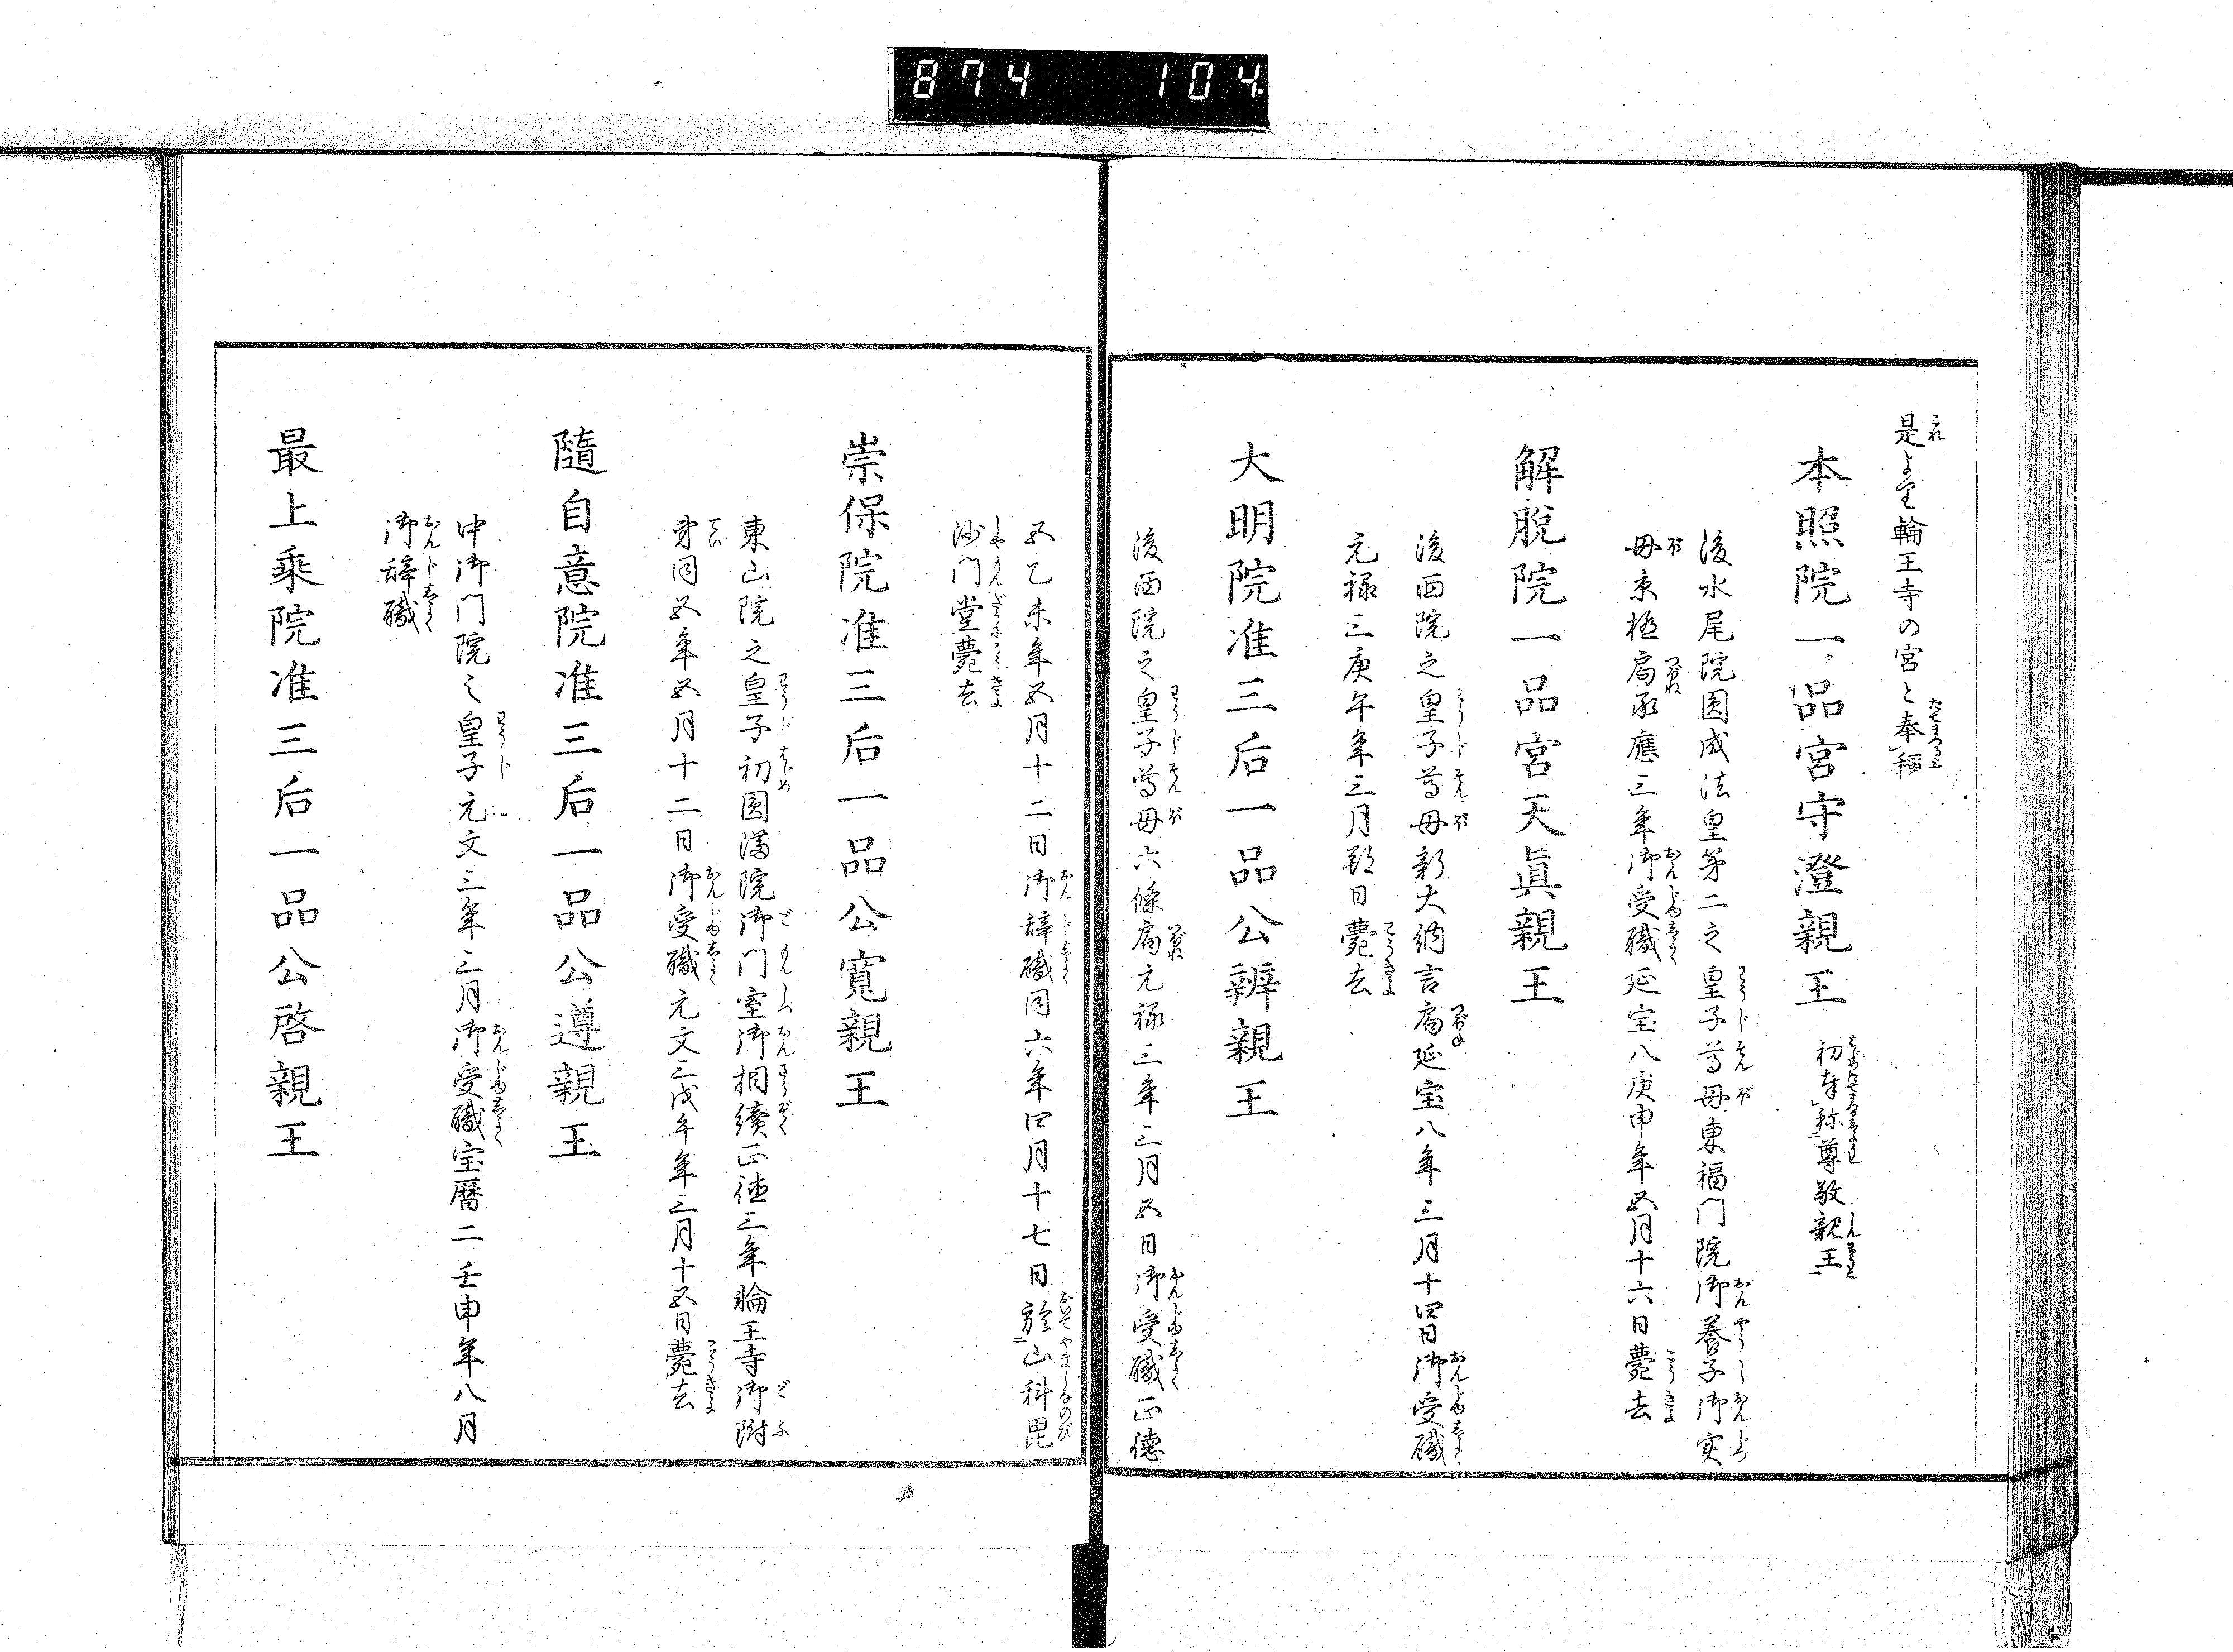 874 104
是より輪王寺の宮と奉称
本照院一品宮守澄親王 初奉称尊敬親王
後水尾院圓成法皇第二之皇子尊母東福門院御養子御実
母京極局承應三年御受職延宝八庚申年五月十六日薨去
解脱院一品宮天眞親王
後西院之皇子尊母新大納言局延宝八年三月十四日御受職
元禄三庚午年三月朔日薨去
大明院准三后一品公辨親王
後西院之皇子尊母六條局元禄三年三月五日御受職正徳
五乙未年五月十二日御辞職同六年四月十七日於山科毘
沙门堂薨去
崇保院准三后一品公寛親王
東山院之皇子初圓満院御门室御相續正徳三年輪王寺御附
弟同五年五月十二日御受職元文三戊午年三月十五日薨去
隨自意院准三后一品公遵親王
中御门院之皇子元文三年三月御受職宝暦二壬申年八月
御辞職
最上乘院准三后一品公啓親王